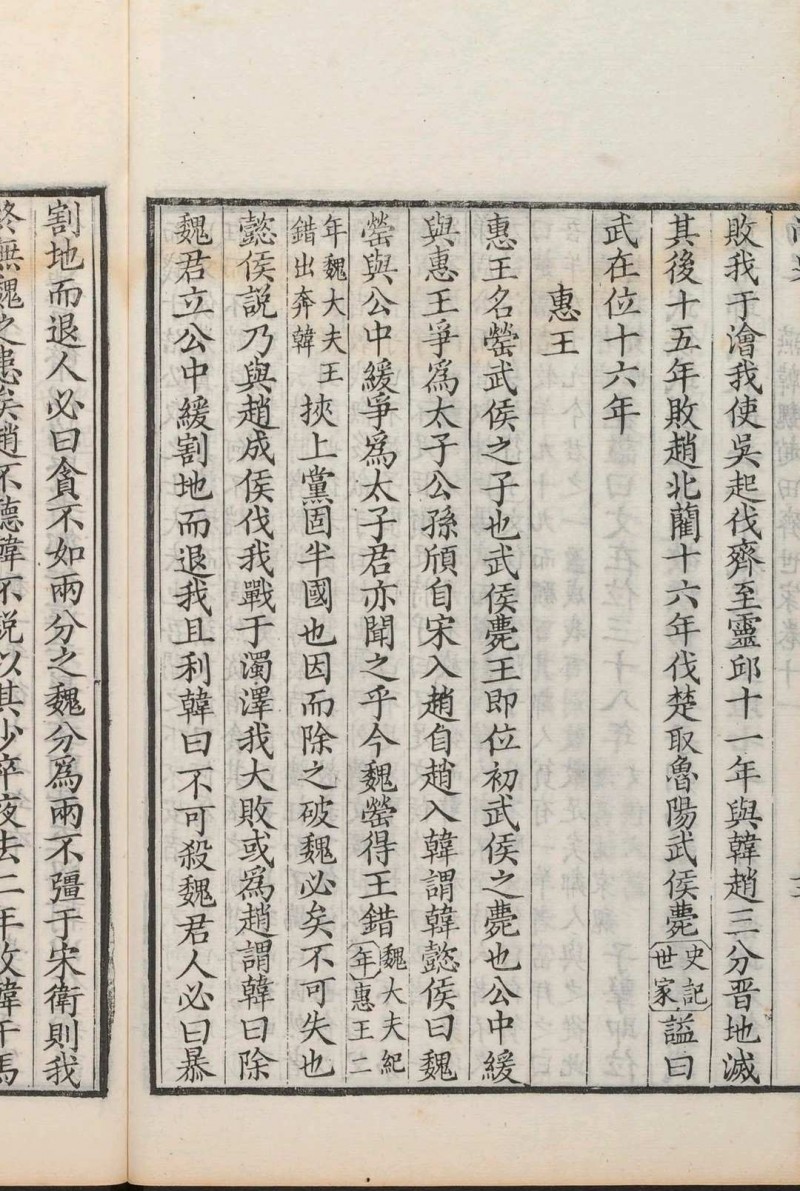 敗我于澮我使吳起伐齊至靈邱十一年與韓趙三分晉地滅
其後十五年敗趙北藺十六年伐楚取魯陽武侯薨史記世家謚曰
武在位十六年
惠王
惠王名罃武侯之子也武侯薨王即位初武侯之薨也公中緩
與惠王爭爲太子公孫頎自宋入趙自趙入韓謂韓懿侯曰魏
罃與公中緩爭爲太子君亦聞之乎今魏罃得王錯魏大夫紀年惠王二
年魏大夫王錯出奔韓挾上黨固半國也因而除之破魏必矣不可失也
懿侯說乃與趙成侯伐我戰于濁澤我大敗或爲趙謂韓曰除
魏君立公中緩割地而退我且利韓曰不可殺魏君人必曰暴
割地而退人必曰貪不如兩分之魏分爲兩不彊于宋衛則我
終無魏之患矣趙不聽韓不說以其少卒夜去二年敗韓于馬